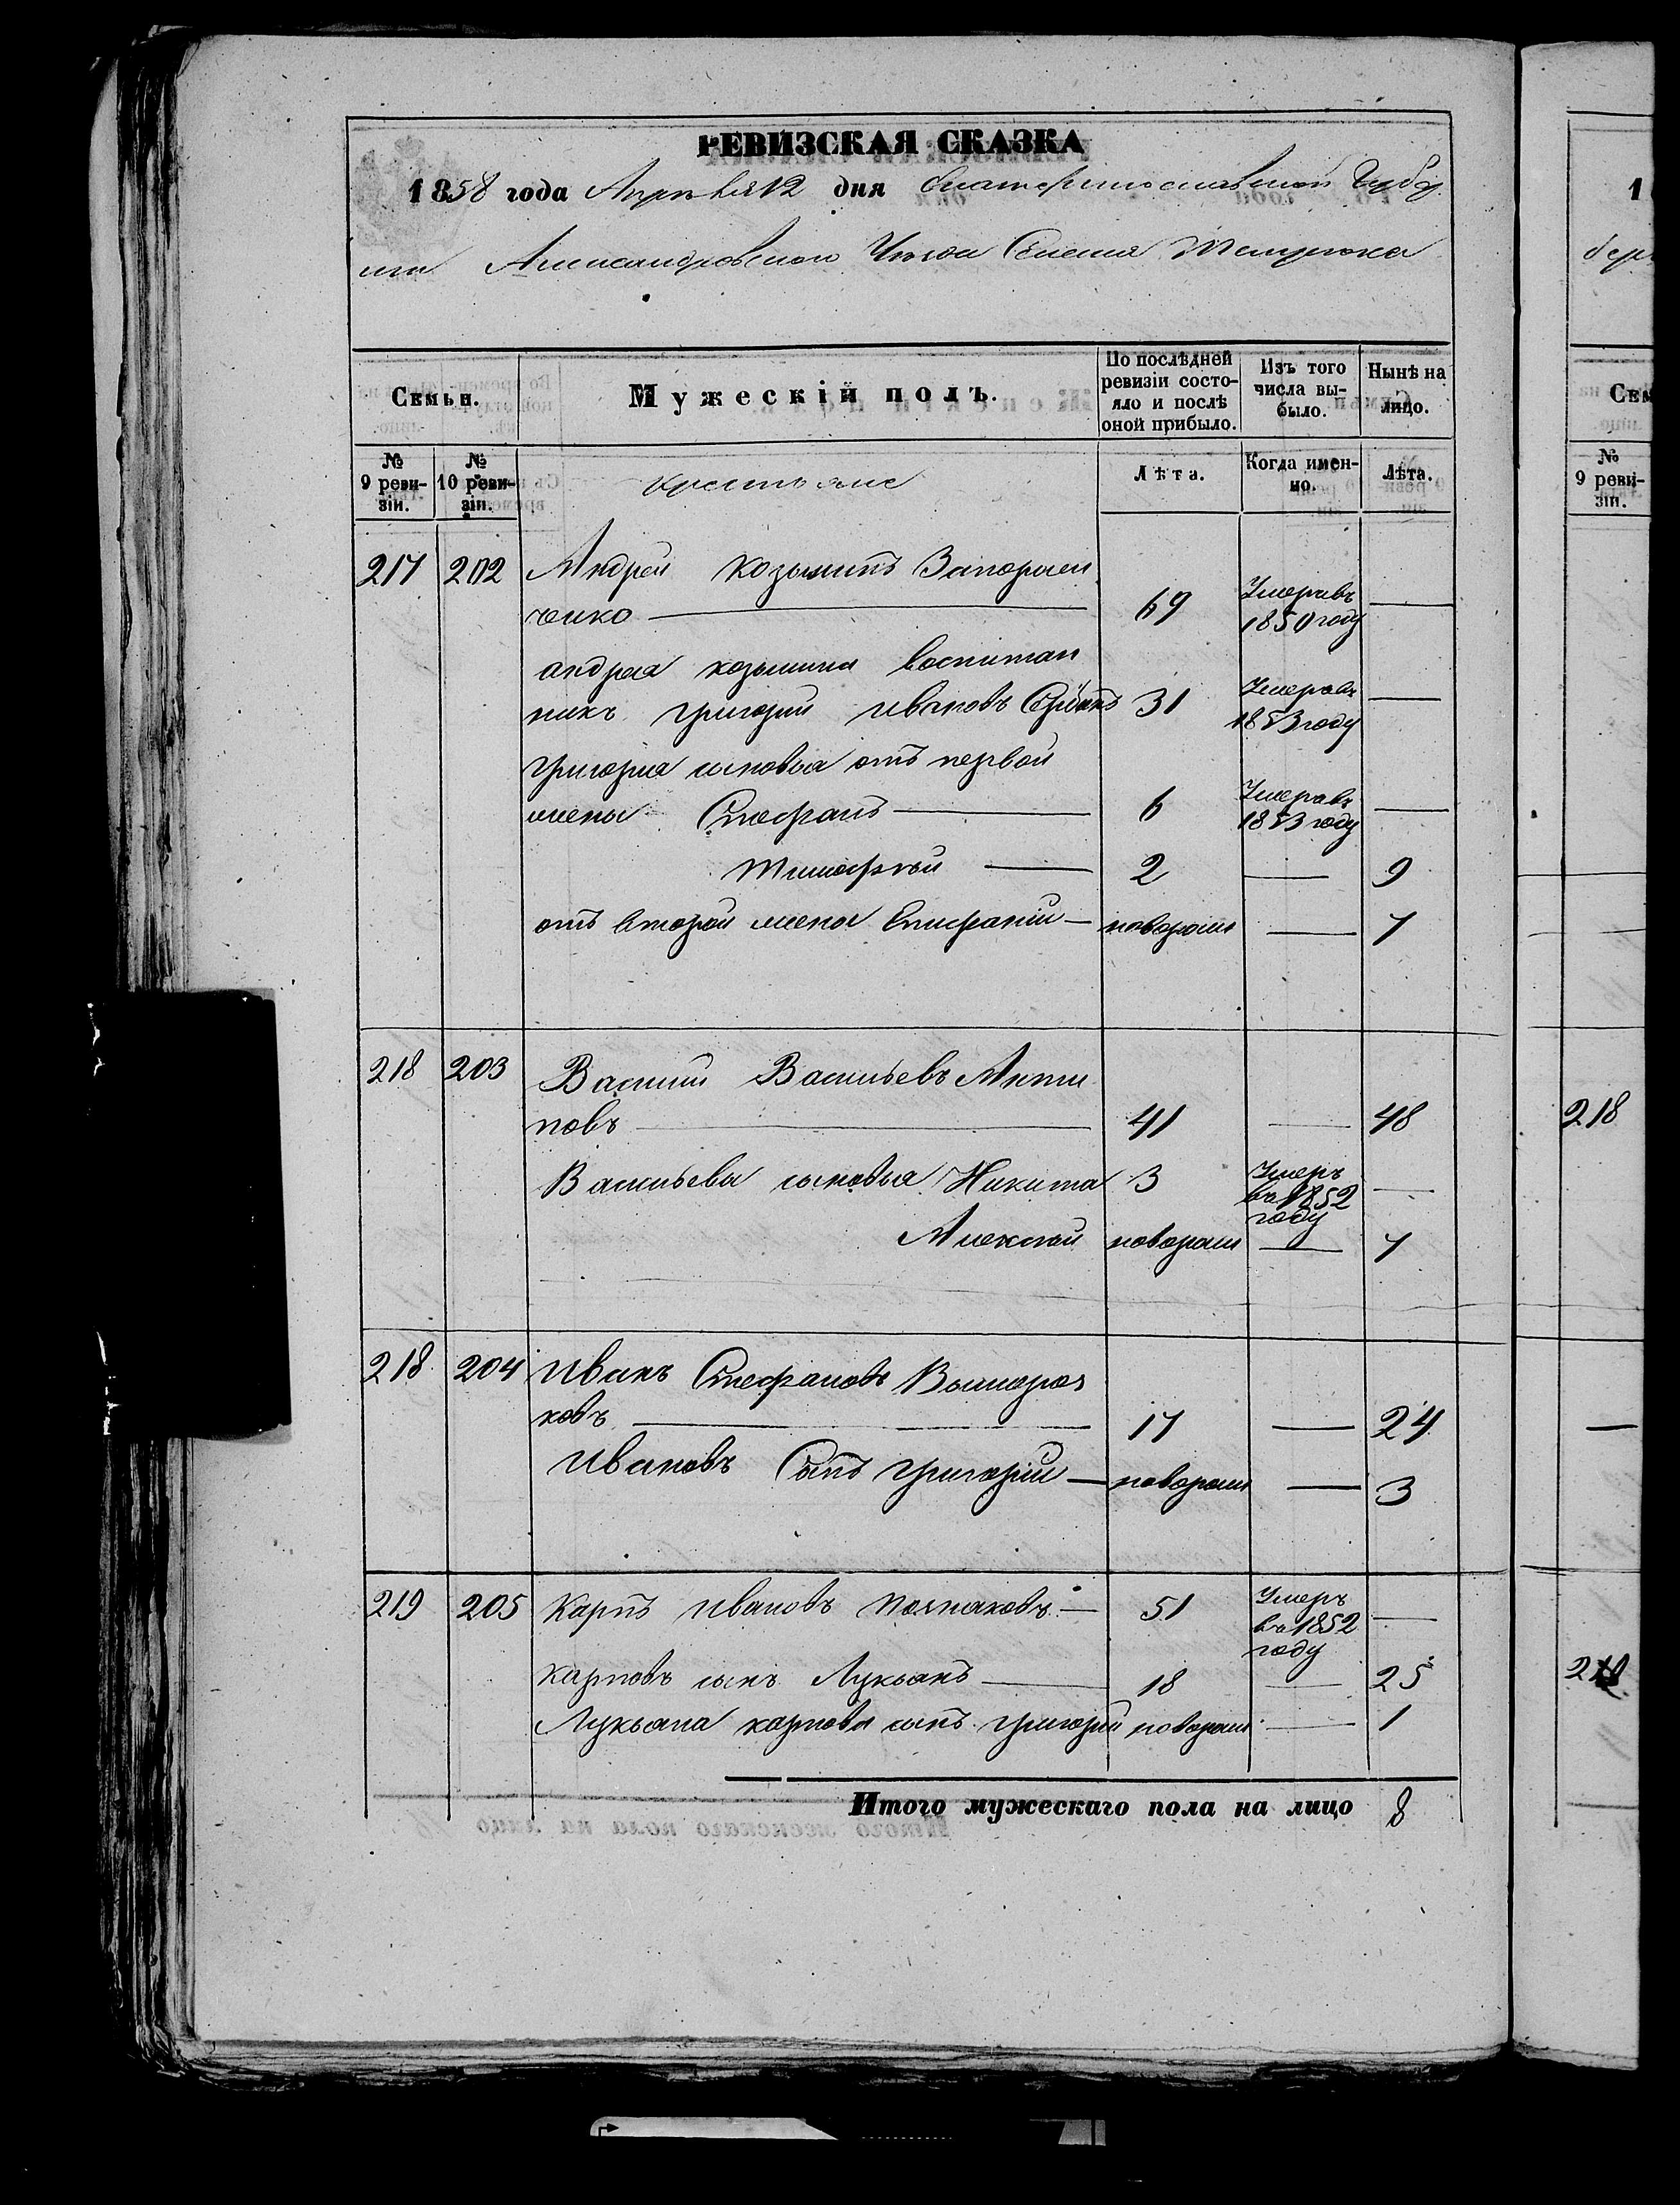 РЕВИЗСКАЯ СКАЗКА
1858 года Апрѣля 12 дня Екатеринославской Губер
нiи Александровскаго Уѣзда Селенiя Темрюка
Семьи.
Мужескiй полъ.
По послѣдней ревизiи состояло и послѣ оной прибыло.
Изъ того числа выбыло.
Нынѣ на лицо.
№ 9 ревизiи.
№ 10 ревизiи.
крестьяне
Лѣта.
Когда именно.
Лѣта.
217 202 Андрей Козьминъ Запорожен
ченко — 69 Умеръ въ 1850 году —
андрея козьмина воспитан
никъ григорiй ивановъ 31 Умеръ въ 1853 году —
григорiя сыновья отъ первой
жены Стефанъ — 6 Умеръ въ 1853 году —
Тимофѣй — 2 — 9
отъ второй жены Епифанiй — новорож — 7
218 203 Василiй Васильевъ Анти
повъ — 41 — 48
Васильевы сыновья Никита 3 Умеръ въ 1852 году —
Алексѣй новорож — 7
218 204 Иванъ Стефановъ Вымороз
ковъ — 17 — 24
Ивановъ Сынъ григорiй — новорож — 3
219 205 Карпъ Ивановъ — 51 Умеръ въ 1852 году —
карповъ сынъ Лукьянъ — 18 — 25
Лукьяна карпова сынъ григорiй новорож — 1
Итого мужескаго пола на лицо 8
1
Сем
№ 9 ревизiи.
218
—